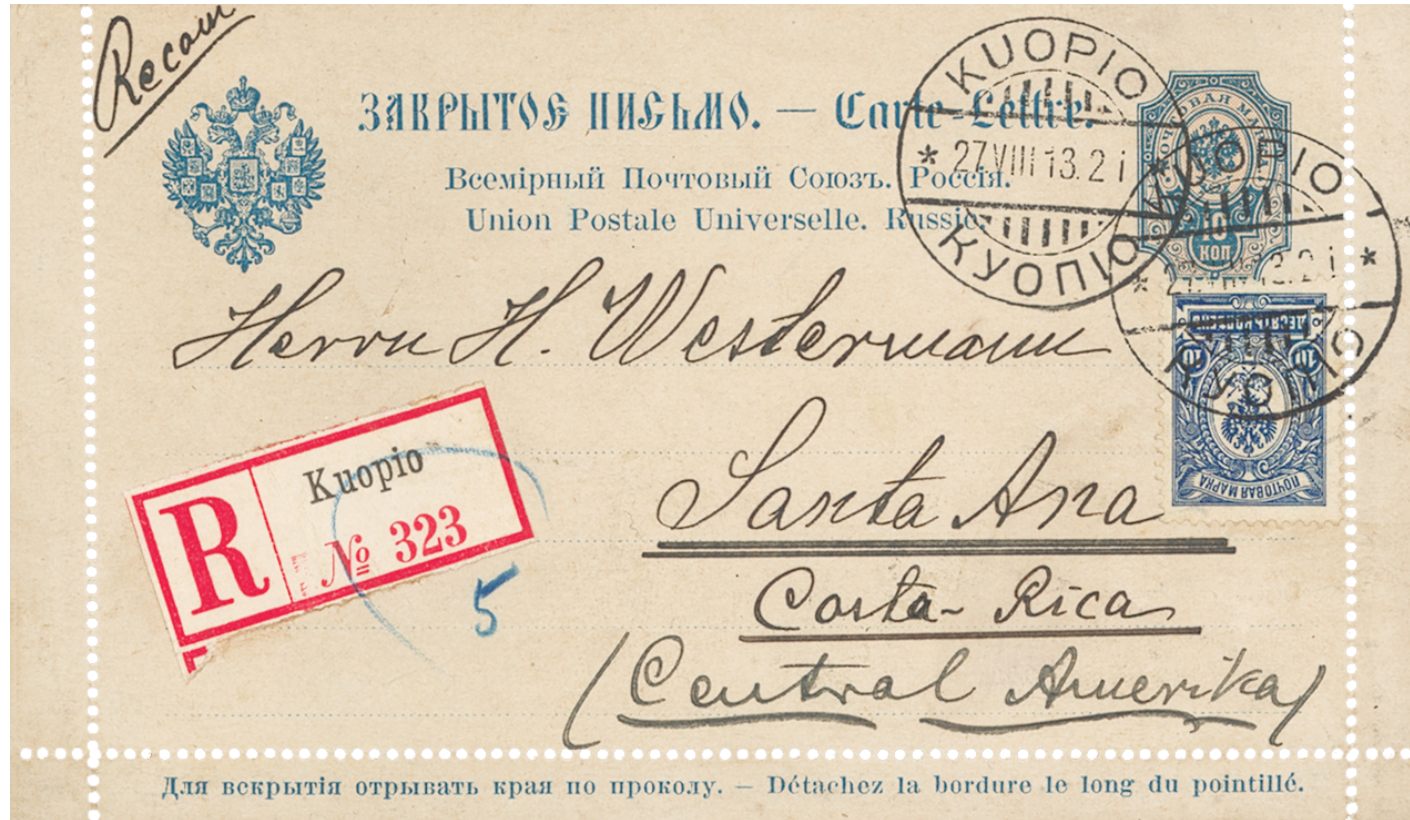 Recom
ЗАКРЫТОЕ ПИСЬМО. — Carte-Lettre.
Всемірный Почтовый Союзъ. Россія.
Union Postale Universelle. Russie.
KUOPIO
* 27.VIII 13. 2 i *
КУОПІО
ПОЧТОВАЯ МАРКА
10
КОП
KUOPIO
* 27.VIII.13. 2 i *
КУОПІО
10
10
ПОЧТОВАЯ МАРКА
Herrn H. Westermann
Santa Ana
Costa-Rica
(Central Amerika)
R
Kuopio
№ 323
5
Для вскрытія отрывать края по проколу. — Détachez la bordure le long du pointillé.